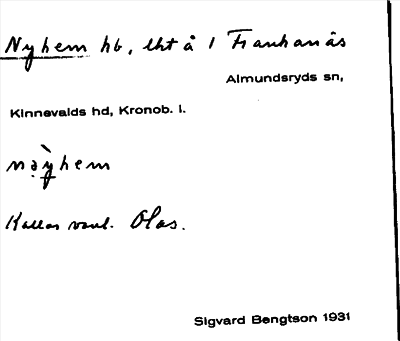 Nyhem hb, lht å 1 Frankanäs
Almundsryds sn,
Kinnevalds hd, Kronob. l.
nạ̀yhem
Kallas vanl. Olas.
Sigvard Bengtson 1931